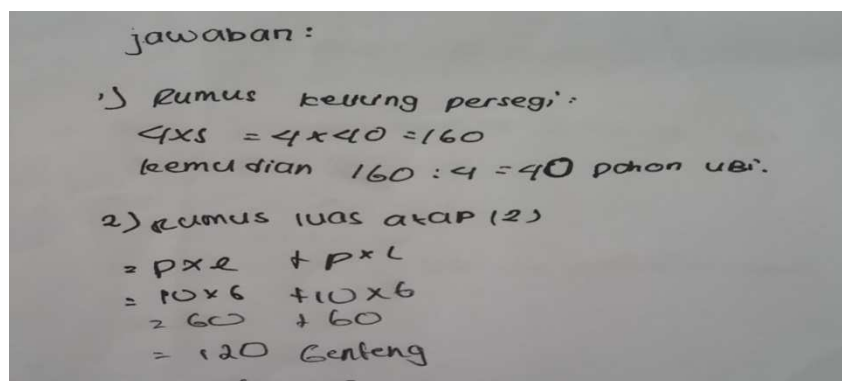 jawaban :
1) Rumus keliling persegi :
4xs = 4x40 = 160
kemudian 160 : 4 = 40 pohon ubi.
2) Rumus luas atap (2)
= pxl + pxl
= 10x6 + 10x6
= 60 + 60
= 120 Genteng